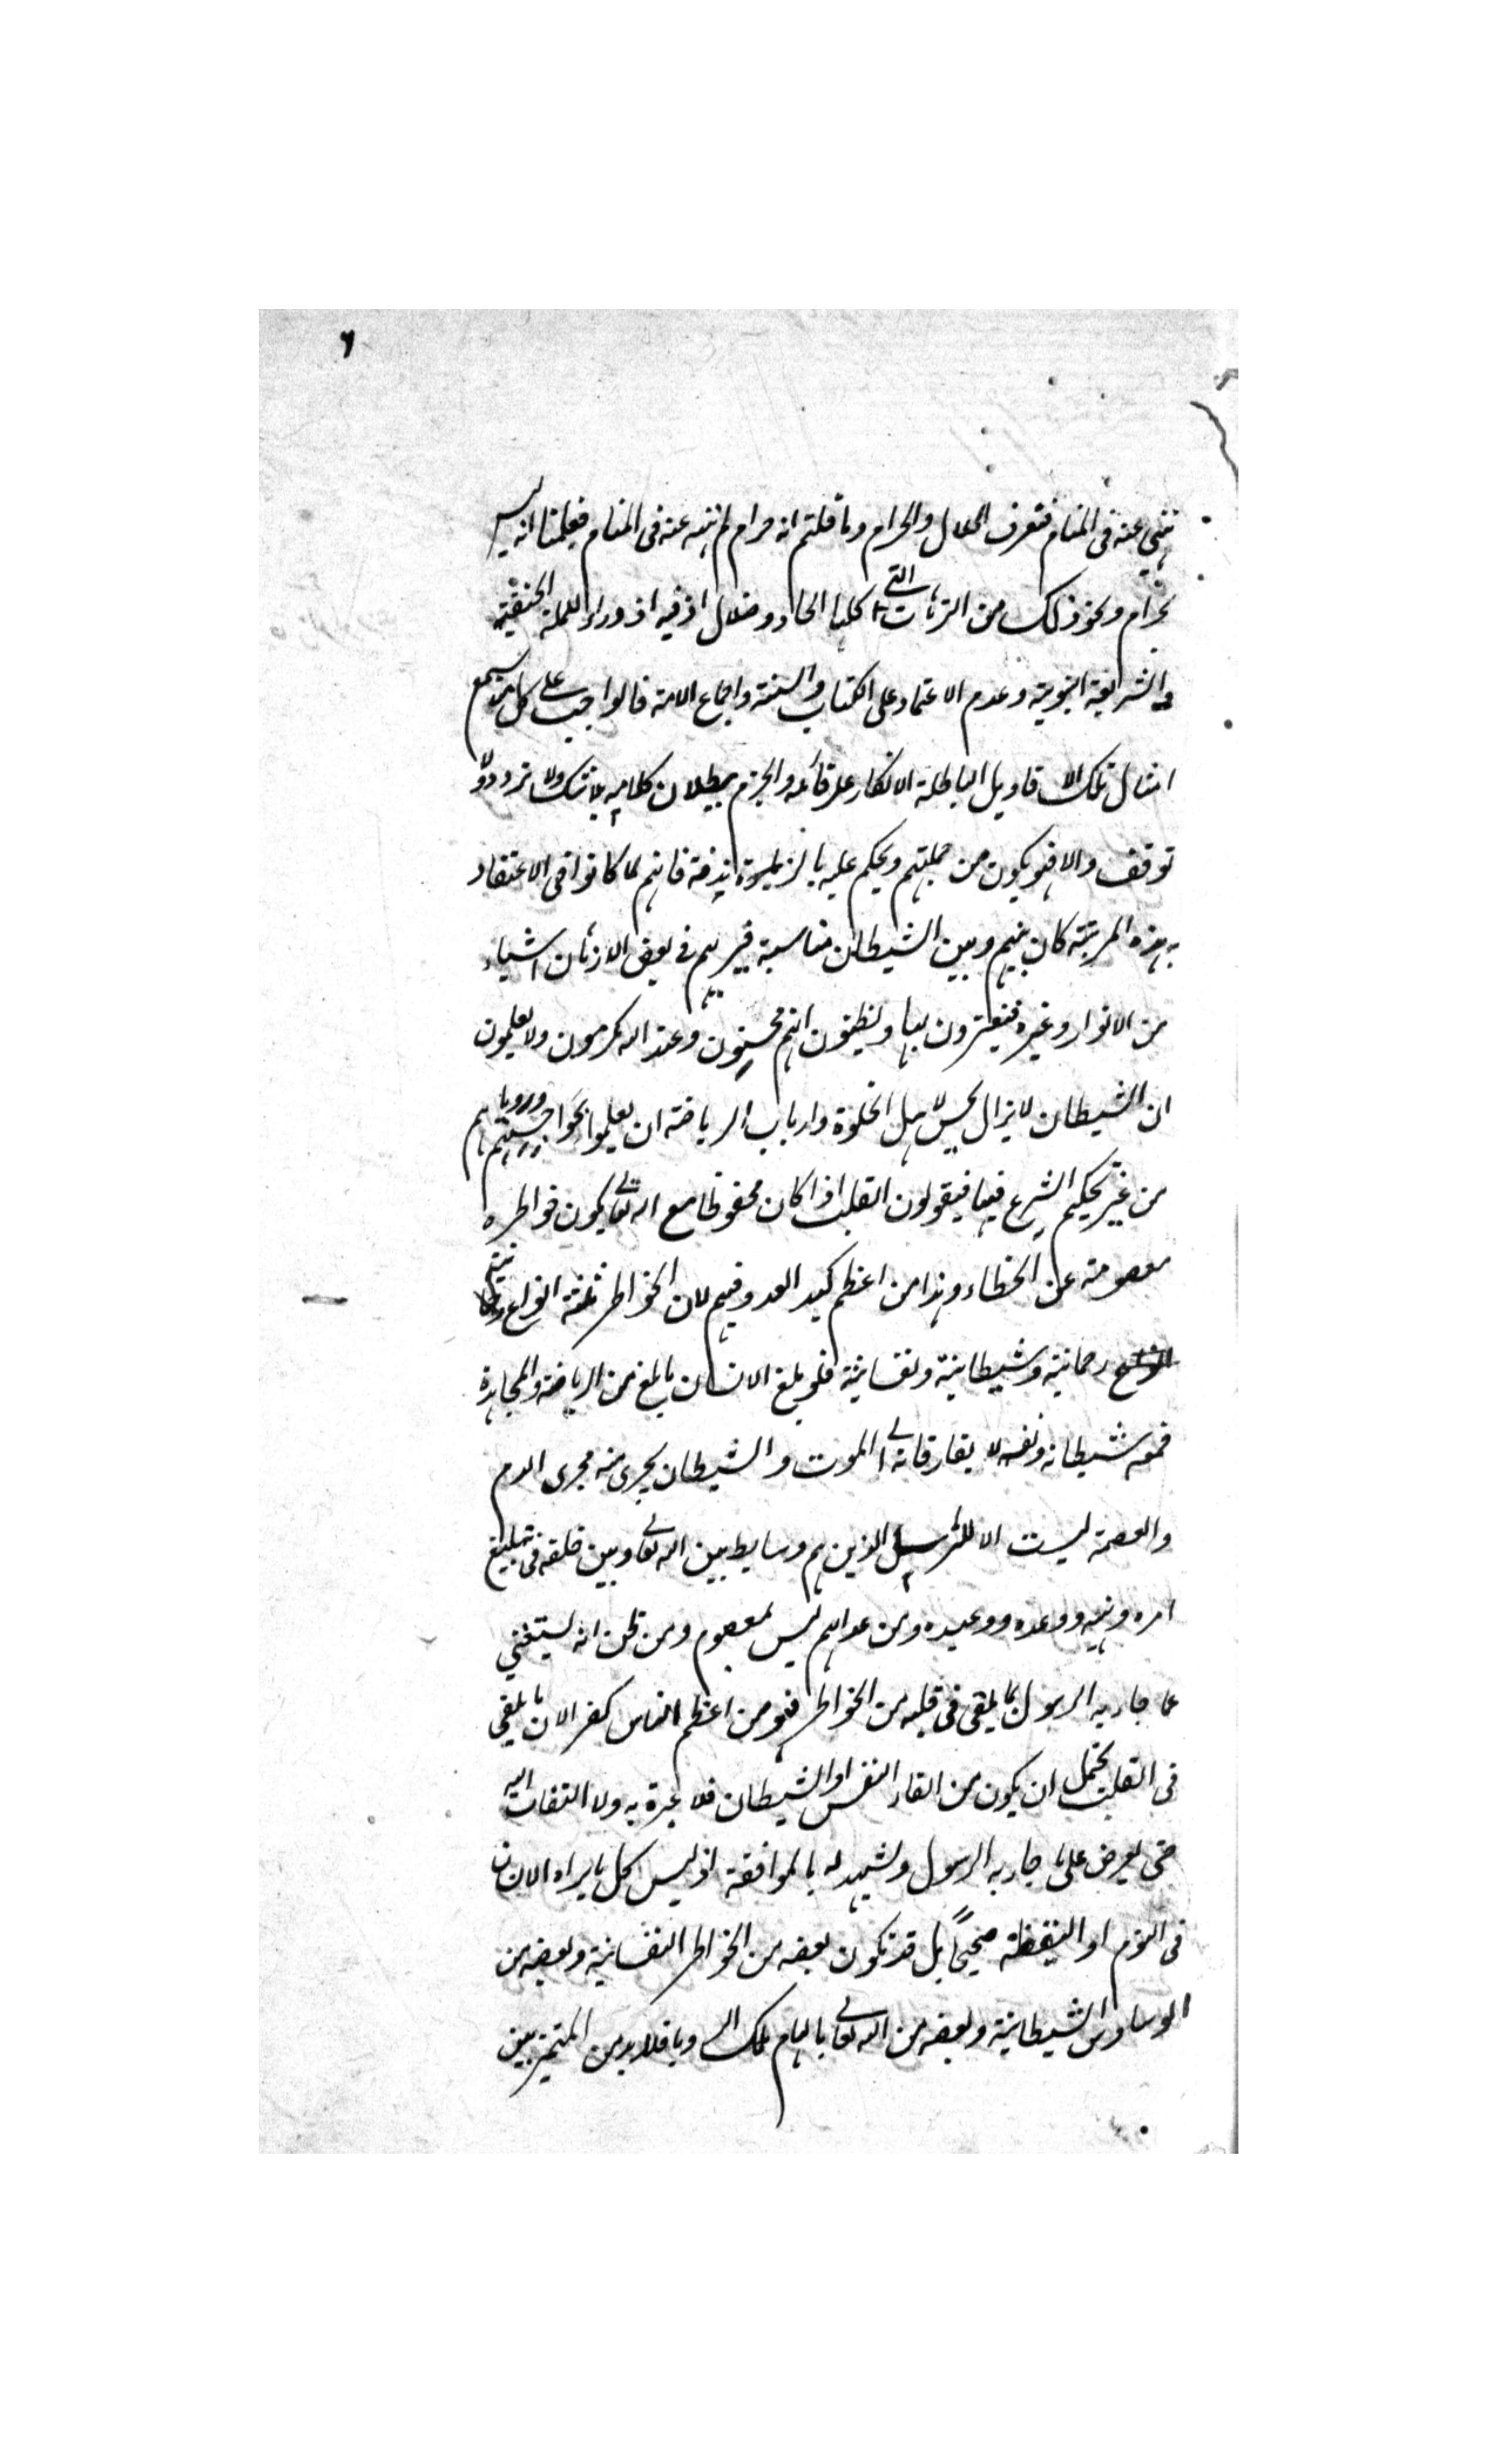 ٦
ننهى عنه فى المنام فنعرف الحلال والحرام وما قلتم انه حرام لم ننه عنه فى المنام فعلمنا انه ليس
بحرام ونحو ذلك من الترهات التى كلها الحاد وضلال اذ فيه ازدراء للملة الحنيفية
والشريعة النبوية وعدم الاعتماد على الكتاب والسنة واجماع الامة فالواجب على كل من سمع
امثال تلك الاقاويل الباطلة الانكار على قائله والجزم ببطلان كلامه بلا شك ولا تردد ولا
توقف والا فهو يكون من جملتهم ويحكم عليه بالزندقة فانهم لما كانوا فى الاعتقاد
بهذه المرتبة كان بينهم وبين الشيطان مناسبة فيريهم فى بعض الازمان اشياء
من الانوار وغيره فيغترون بها ويظنون انهم محسنون وعند الله مكرمون ولا يعلمون
ان الشيطان لا يزال يحسن لاهل الخلوة وارباب الرياضة ان يعملوا بهواجسهم ورؤياهم
من غير تحكيم الشرع فيها فيقولون القلب اذا كان محفوظا مع الله تعالى يكون خواطره
معصومة عن الخطاء وهذا من اعظم كيد العدو فيهم لان الخواطر ثلثة انواع
رحمانية وشيطانية ونفسانية فلو بلغ الانسان ما بلغ من الرياضة والمجاهدة
فمعه شيطانه ونفسه لا يفارقانه الى الموت والشيطان يجرى منه مجرى الدم
والعصمة ليست الا للرسل الذين هم وسايط بين الله تعالى وبين خلقه فى تبليغ
امره ونهيه ووعده ووعيده ومن عداهم ليس بمعصوم ومن ظن انه يستغنى
عما جاء به الرسول بما يلقى فى قلبه من الخواطر فهو من اعظم الناس كفرا لان ما يلقى
فى القلب يحتمل ان يكون من القاء النفس او الشيطان فلا عبرة به ولا التفات اليه
حتى يعرض على ما جاء به الرسول ويشهد له بالموافقة اذ ليس كل ما يراه الانسان
فى النوم او اليقظة صحيحاً بل قد تكون بعضه من الخواطر النفسانية وبعضه من
الوساوس الشيطانية وبعضه من الله تعالى بالهام ملك الرويا فلا بد من التميز بين